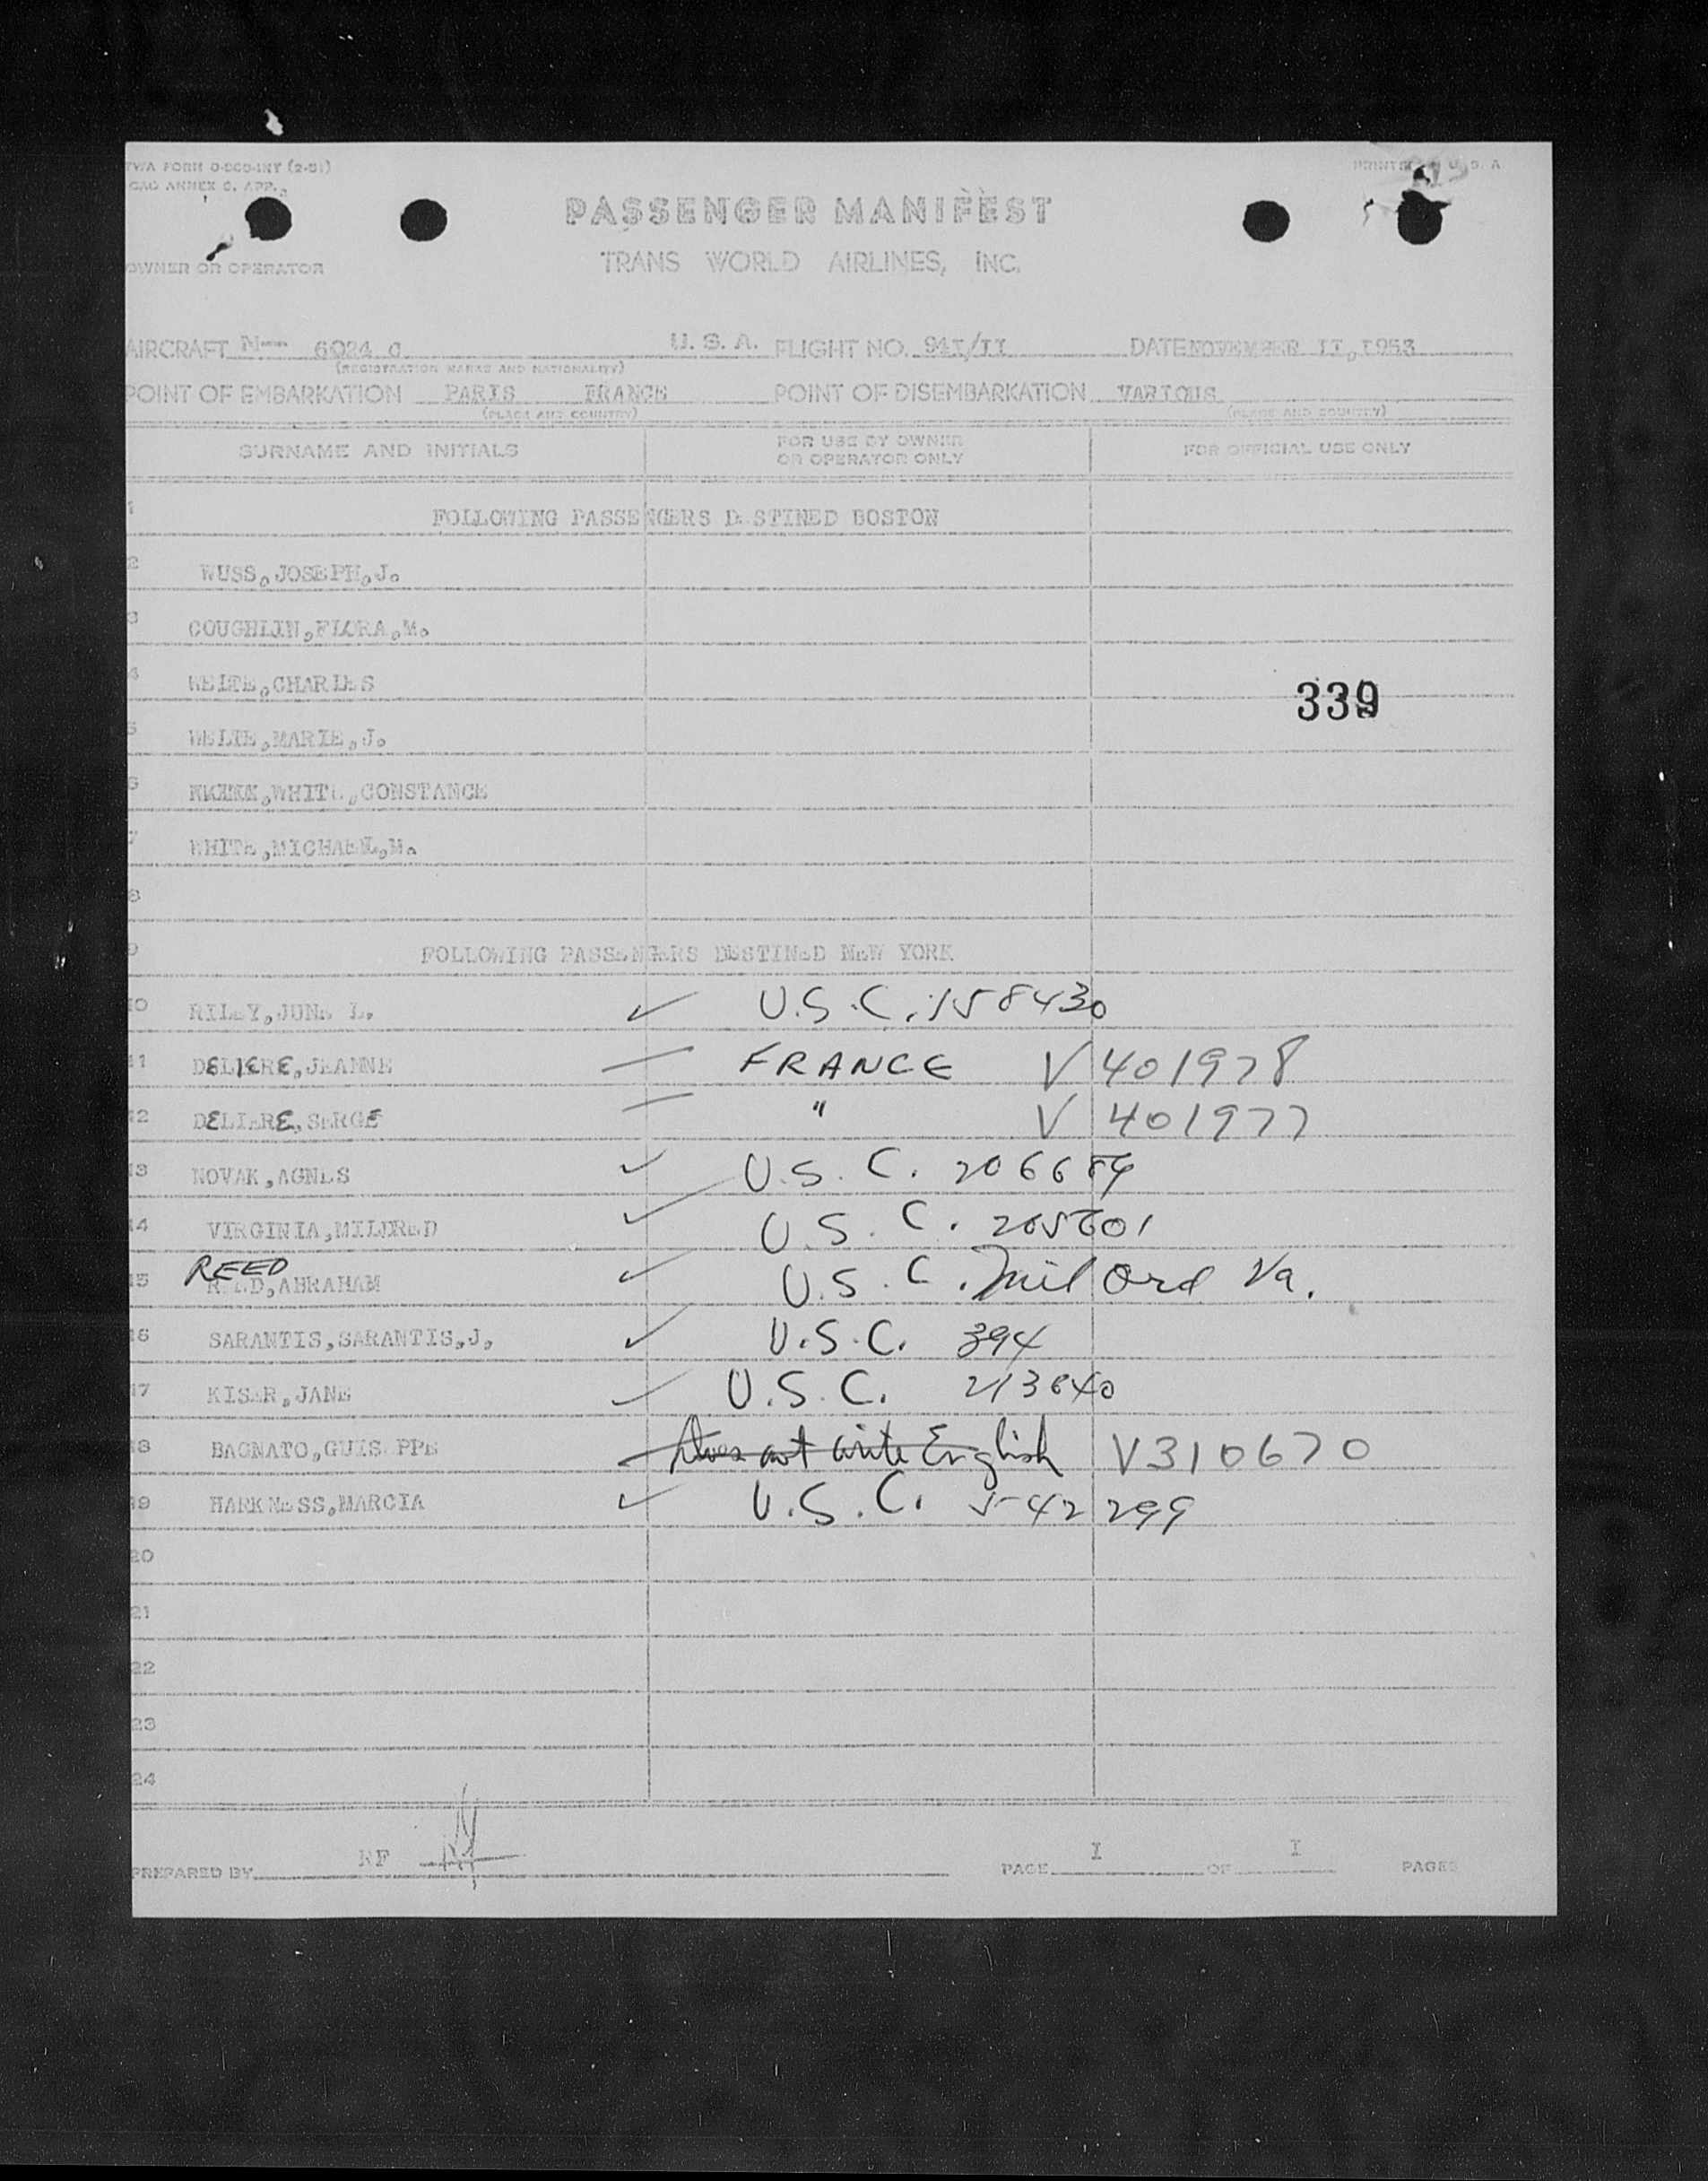 TWA FORM O-SCO-INT (2-51)
PRINTED U. S. A.
ICAO ANNEX 9, APP.
PASSENGER MANIFEST
OWNER OR OPERATOR TRANS WORLD AIRLINES, INC.
AIRCRAFT N-- 6024 C U. S. A. FLIGHT NO. 94I/II DATE NOVEMBER II, I953
(REGISTRATION MARKS AND NATIONALITY)
POINT OF EMBARKATION PARIS FRANCE POINT OF DISEMBARKATION VARIOUS
(PLACE AND COUNTRY) (PLACE AND COUNTRY)
SURNAME AND INITIALS FOR USE BY OWNER OR OPERATOR ONLY FOR OFFICIAL USE ONLY
1 FOLLOWING PASSENGERS DESTINED BOSTON
2 WUSS, JOSEPH, J.
3 COUGHLIN, FLORA, M.
4 WELTE, CHARLES
339
5 WELTE, MARIE, J.
6 WHITE, CONSTANCE
7 WHITE, MICHAEL, M.
8
9 FOLLOWING PASSENGERS DESTINED NEW YORK
10 RILEY, JUNE L. ✓ U.S.C. 158430
11 DELIERE, JEANNE — FRANCE V 401978
12 DELIERE, SERGE — " V 401977
13 NOVAK, AGNES ✓ U.S.C. 206684
14 VIRGINIA, MILDRED ✓ U.S.C. 205601
REED
15 REED, ABRAHAM ✓ U.S.C. Mil Ord Va.
16 SARANTIS, SARANTIS, J, ✓ U.S.C. 394
17 KISER, JANE ✓ U.S.C. 213640
18 BAGNATO, GUISEPPE Does not write English V310670
19 HARKNESS, MARCIA ✓ U.S.C. 542299
20
21
22
23
24
PREPARED BY RF PAGE I OF I PAGES